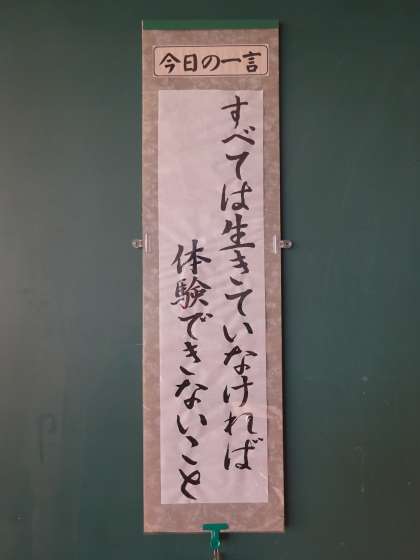 今日の一言
すべては生きていなければ
体験できないこと